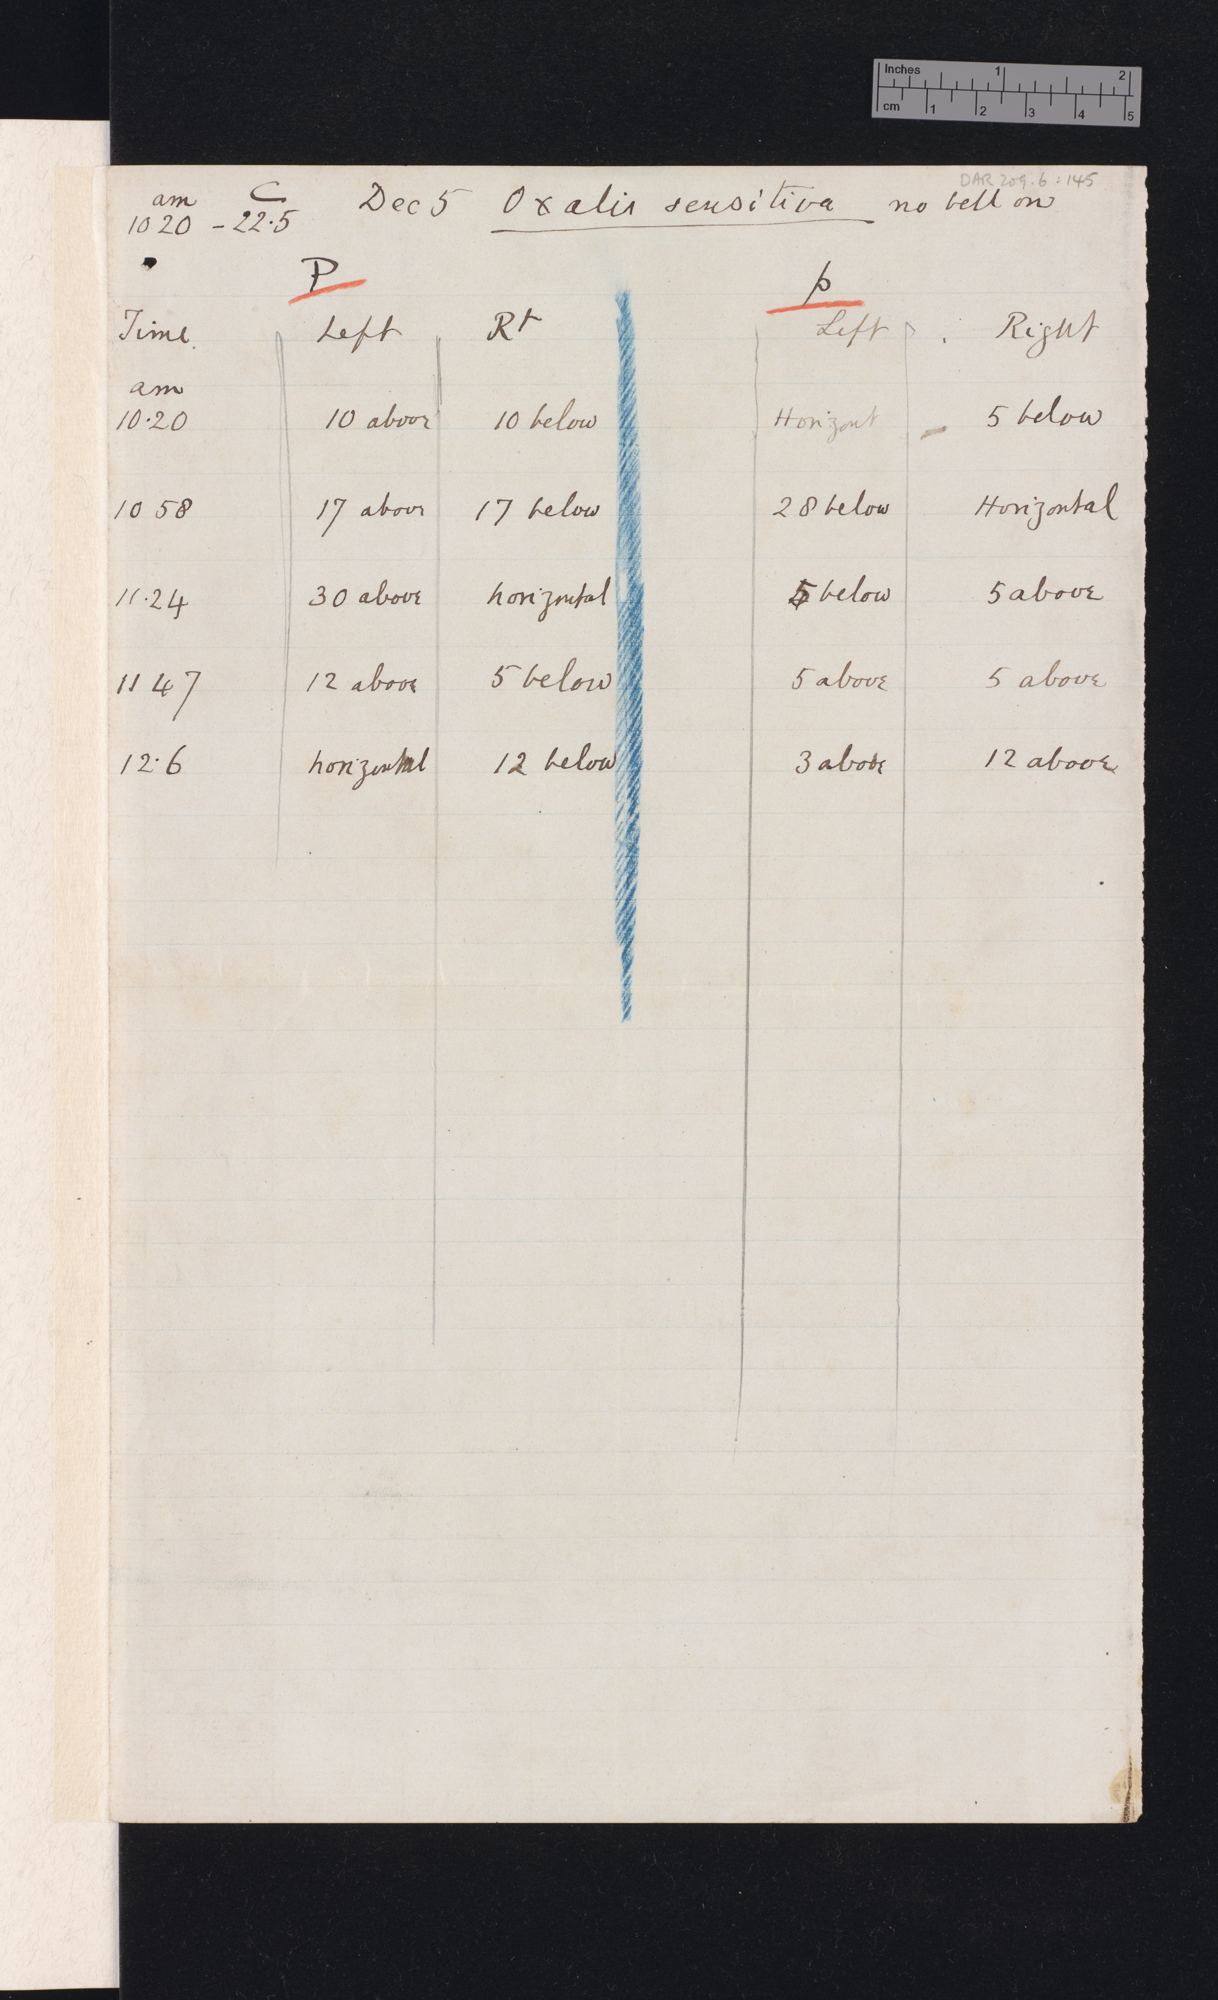 Inches 1 2
cm 1 2 3 4 5
DAR 209.6:145
am C Dec 5 Oxalis sensitiva no bell on
10 20 - 22.5
P p
Time Left Rt Left Right
am
10.20 10 above 10 below Horizont 5 below
10 58 17 above 17 below 28 below Horizontal
11.24 30 above horizontal 5 below 5 above
11 47 12 above 5 below 5 above 5 above
12.6 horizontal 12 below 3 above 12 above